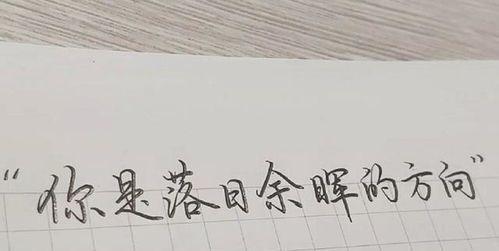 “你是落日余晖的方向”